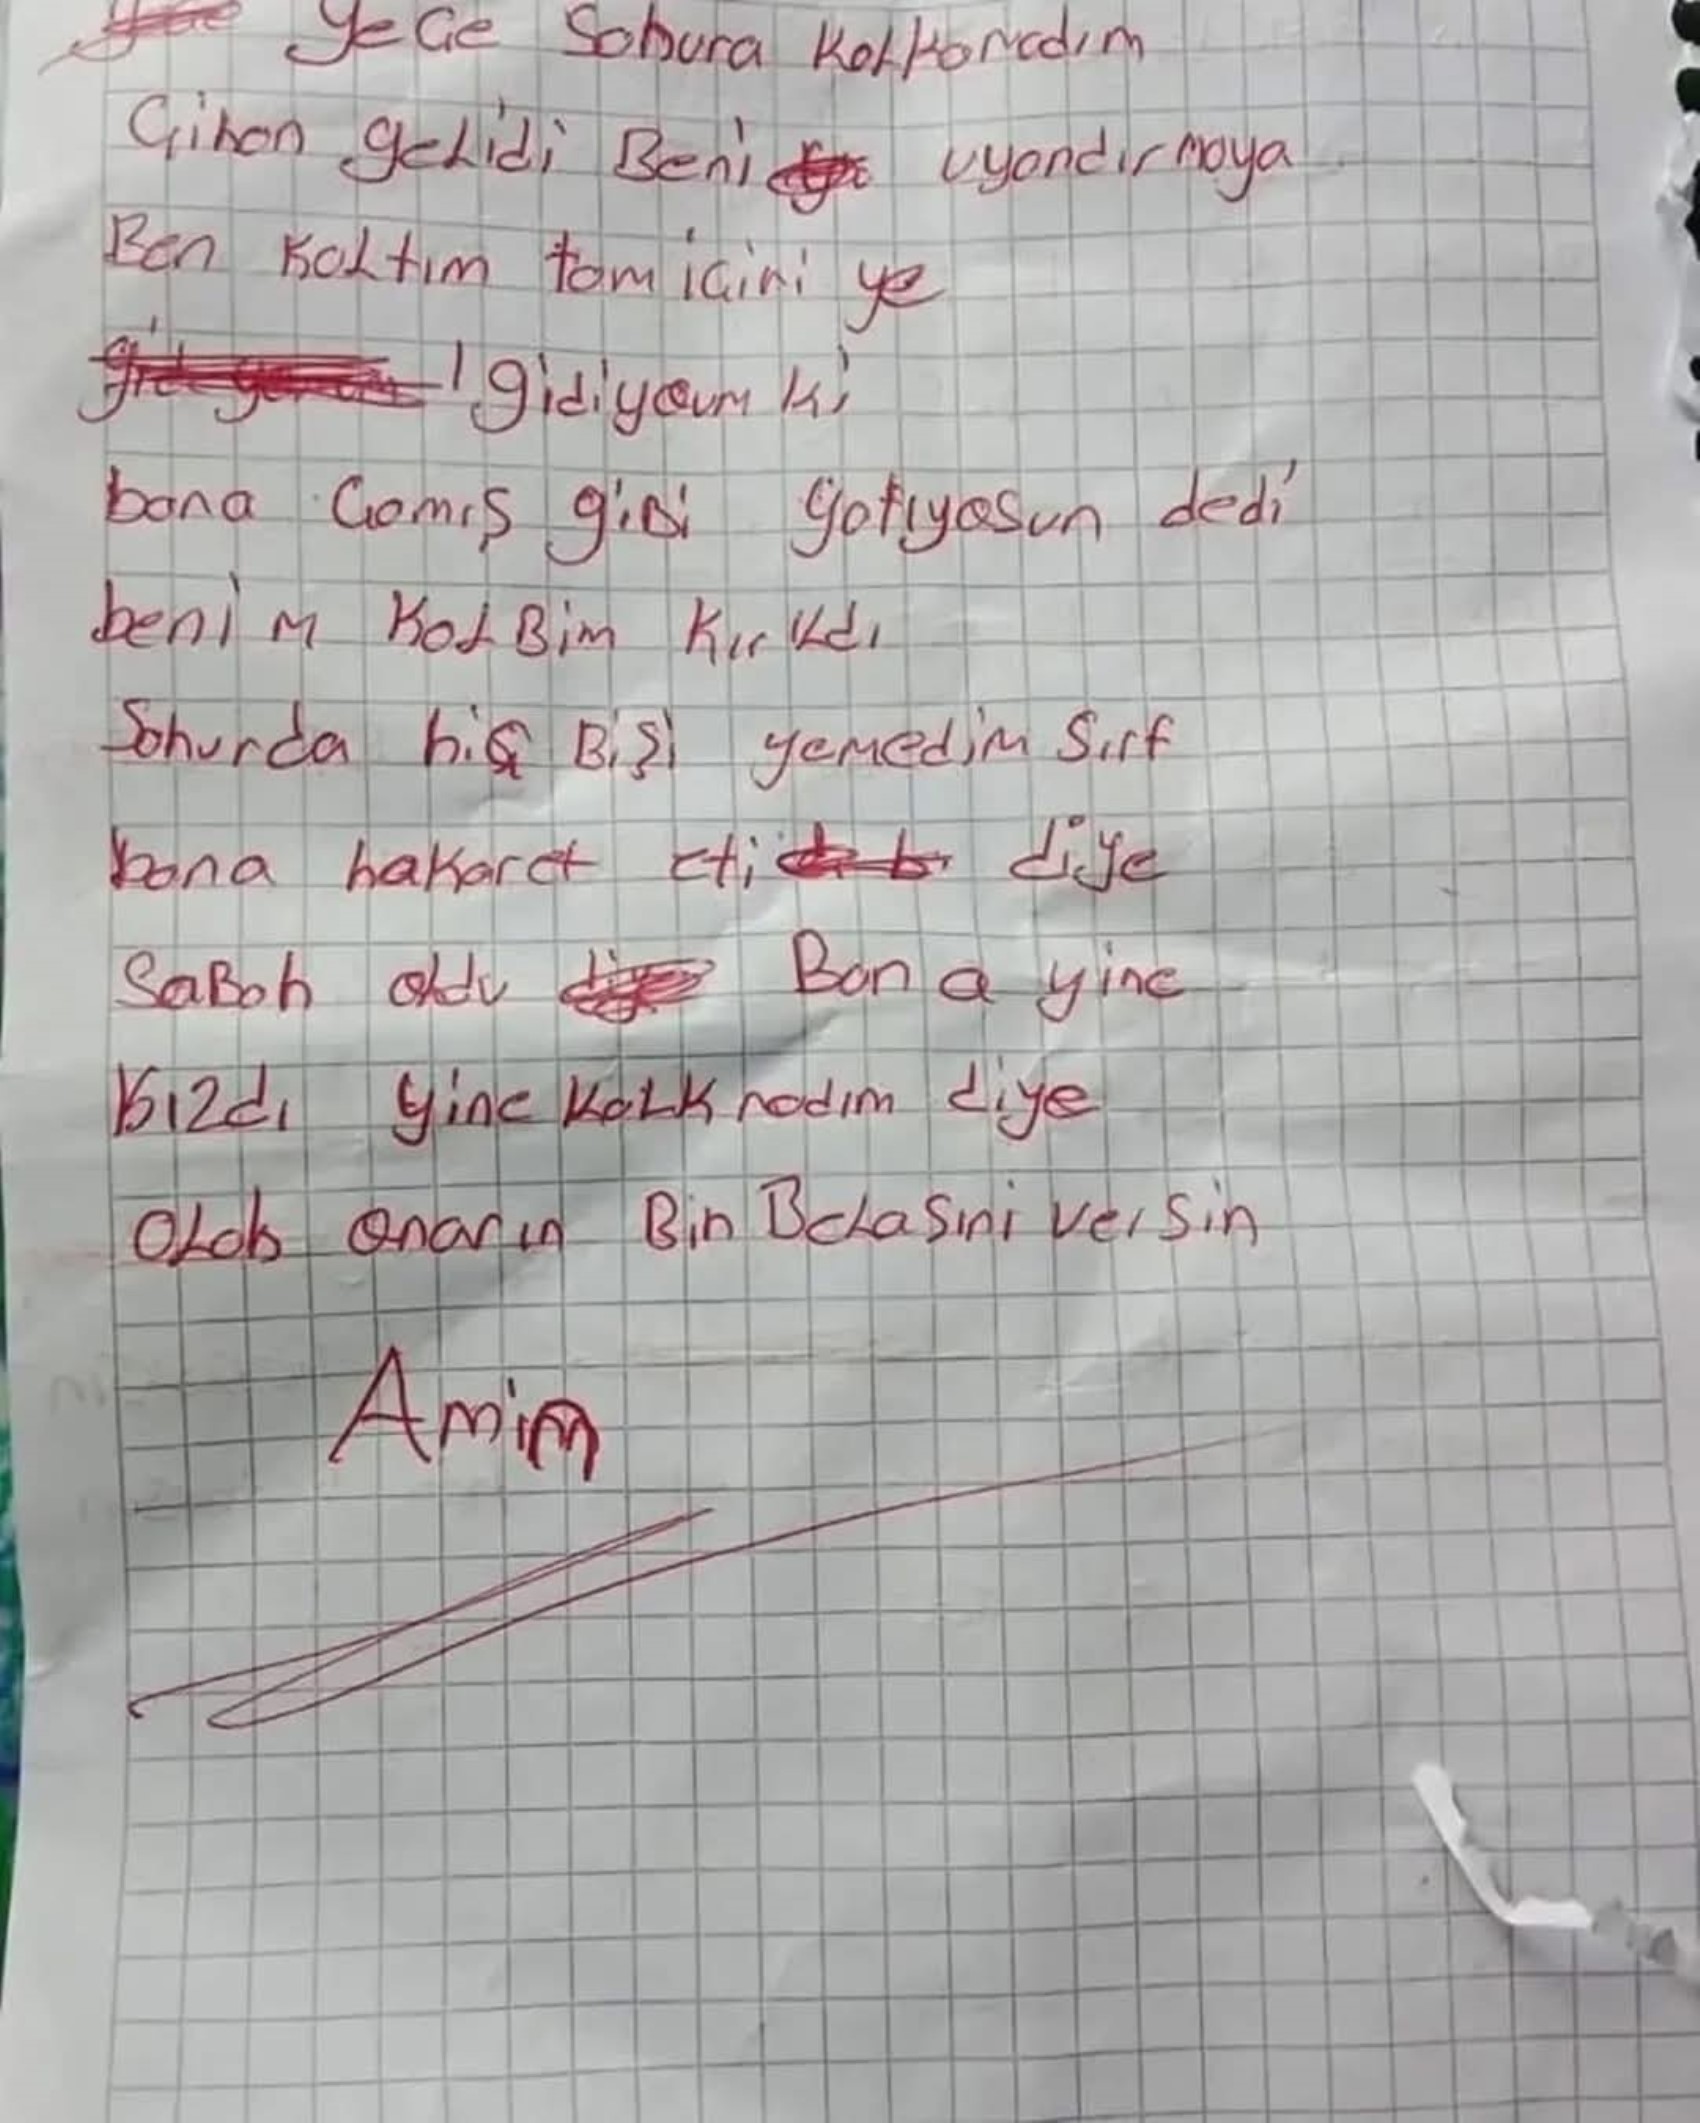 yece Sahura kalkamadım
Cihan gelidi Beni uyandırmaya
Ben kaltım tam içiri ye
gidiyoum ki
bana Camış gibi yatıyasun dedi
benim kalBim kırıkdı
Sahurda hiç Bişi yemedim Sırf
bana hakaret eti diye
SaBah oldu Bana yine
kızdı yine kalkmadım diye
Olah onarın Bin Belasıni versin
Amin